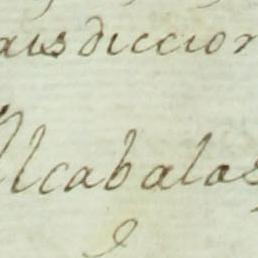 aisdiccion
Alcabalas